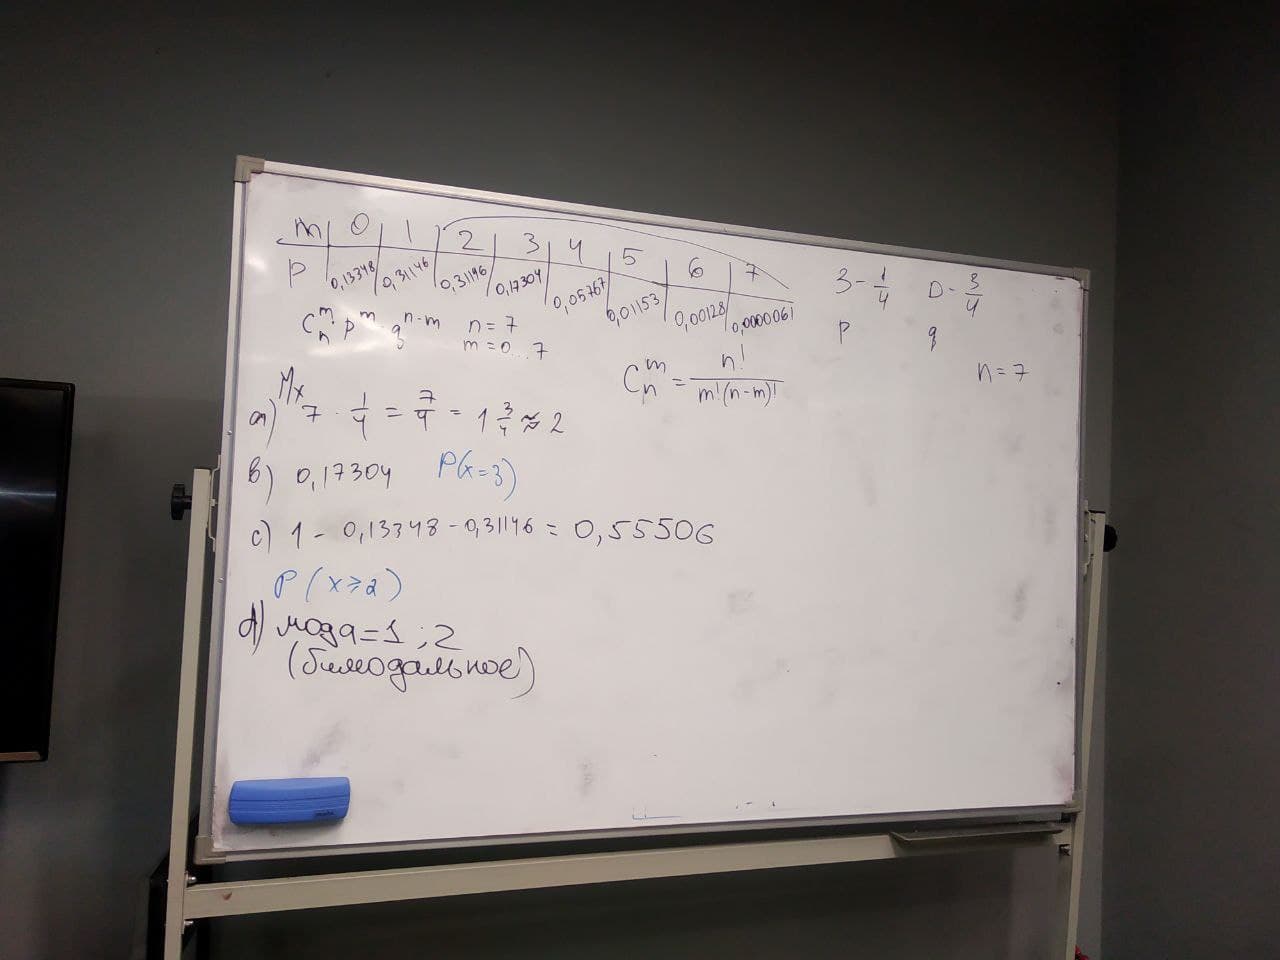 m 0 1 2 3 4 5 6 7
p 0,13348 0,31146 0,31146 0,17304 0,05767 0,01153 0,00128 0,0000061
З - 1/4 D - 3/4
p q
n = 7
C_n^m · p^m · q^{n-m} n = 7
m = 0...7
C_n^m = n! / m!(n-m)!
Mx
a) 7 · 1/4 = 7/4 = 1 3/4 ≈ 2
b) 0,17304 P(x=3)
c) 1 - 0,13348 - 0,31146 = 0,55506
P(x⩾2)
d) мода = 1 ; 2
(бимодальное)